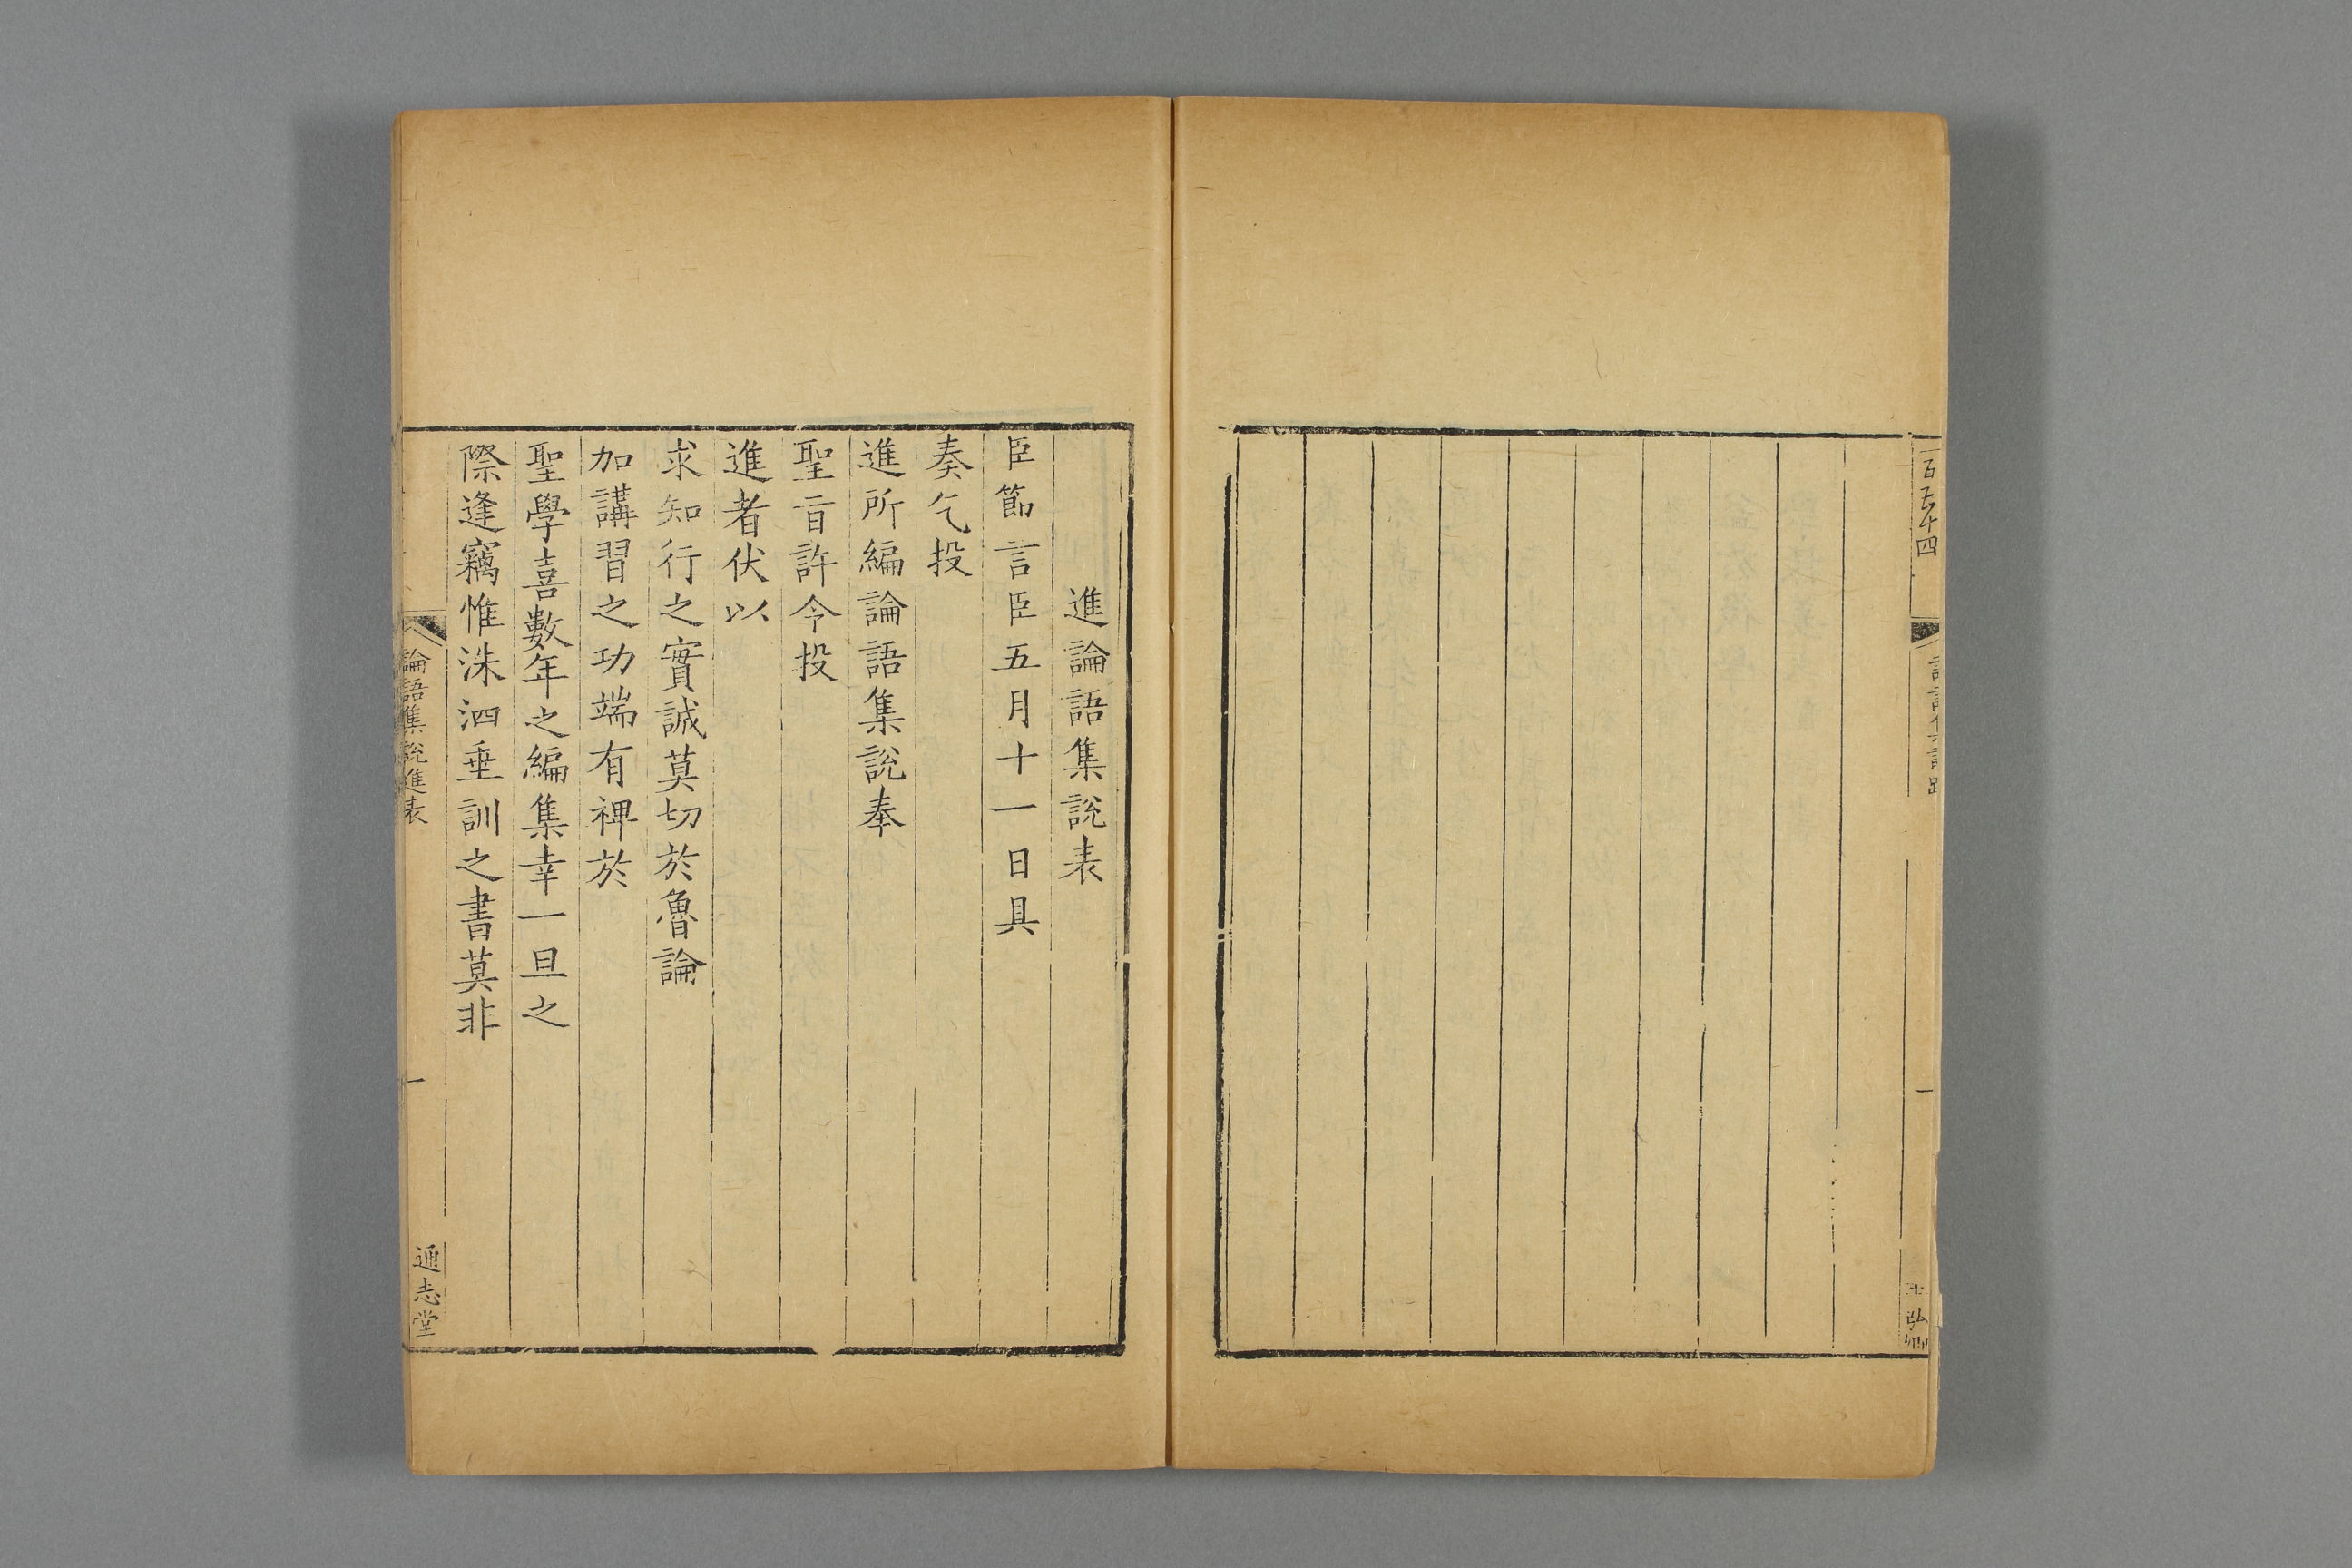 百五十四
一
進論語集說表
臣節言臣五月十一日具
奏乞投
進所編論語集說奉
聖旨許令投
進者伏以
求知行之實誠莫切於魯論
加講習之功端有裨於
聖學喜數年之編集幸一旦之
際逢竊惟洙泗垂訓之書莫非
論語集說進表
一
通志堂